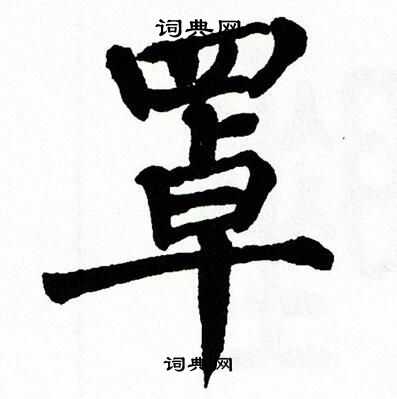 词典网
罩
词典网